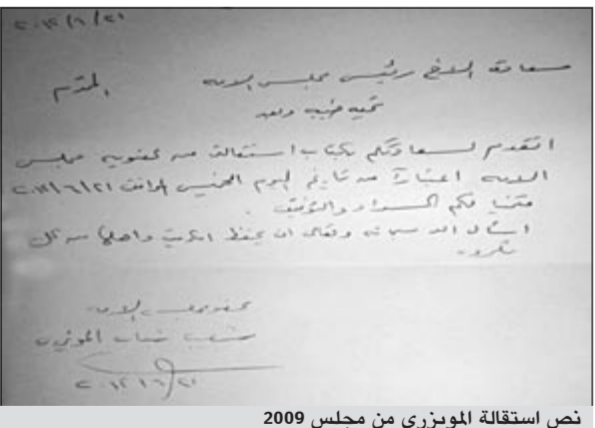 ٢٠١٢/٦/٢١
سعادة الاخ رئيس مجلس الامه المحترم
تحيه طيبه وبعد
اتقدم لسعادتكم بكتاب استقالتي من عضوية مجلس
الامه اعتباراً من تاريخ اليوم الخميس الموافق ٢٠١٢/٦/٢١
متمنيا لكم السداد والتوفيق .
اسأل الله سبحانه وتعالى ان يحفظ الكويت واهلها من كل
مكروه
عضو مجلس الامه
شعيب شباب المويزري
٢٠١٢/٦/٢١
نص استقالة المويزري من مجلس 2009